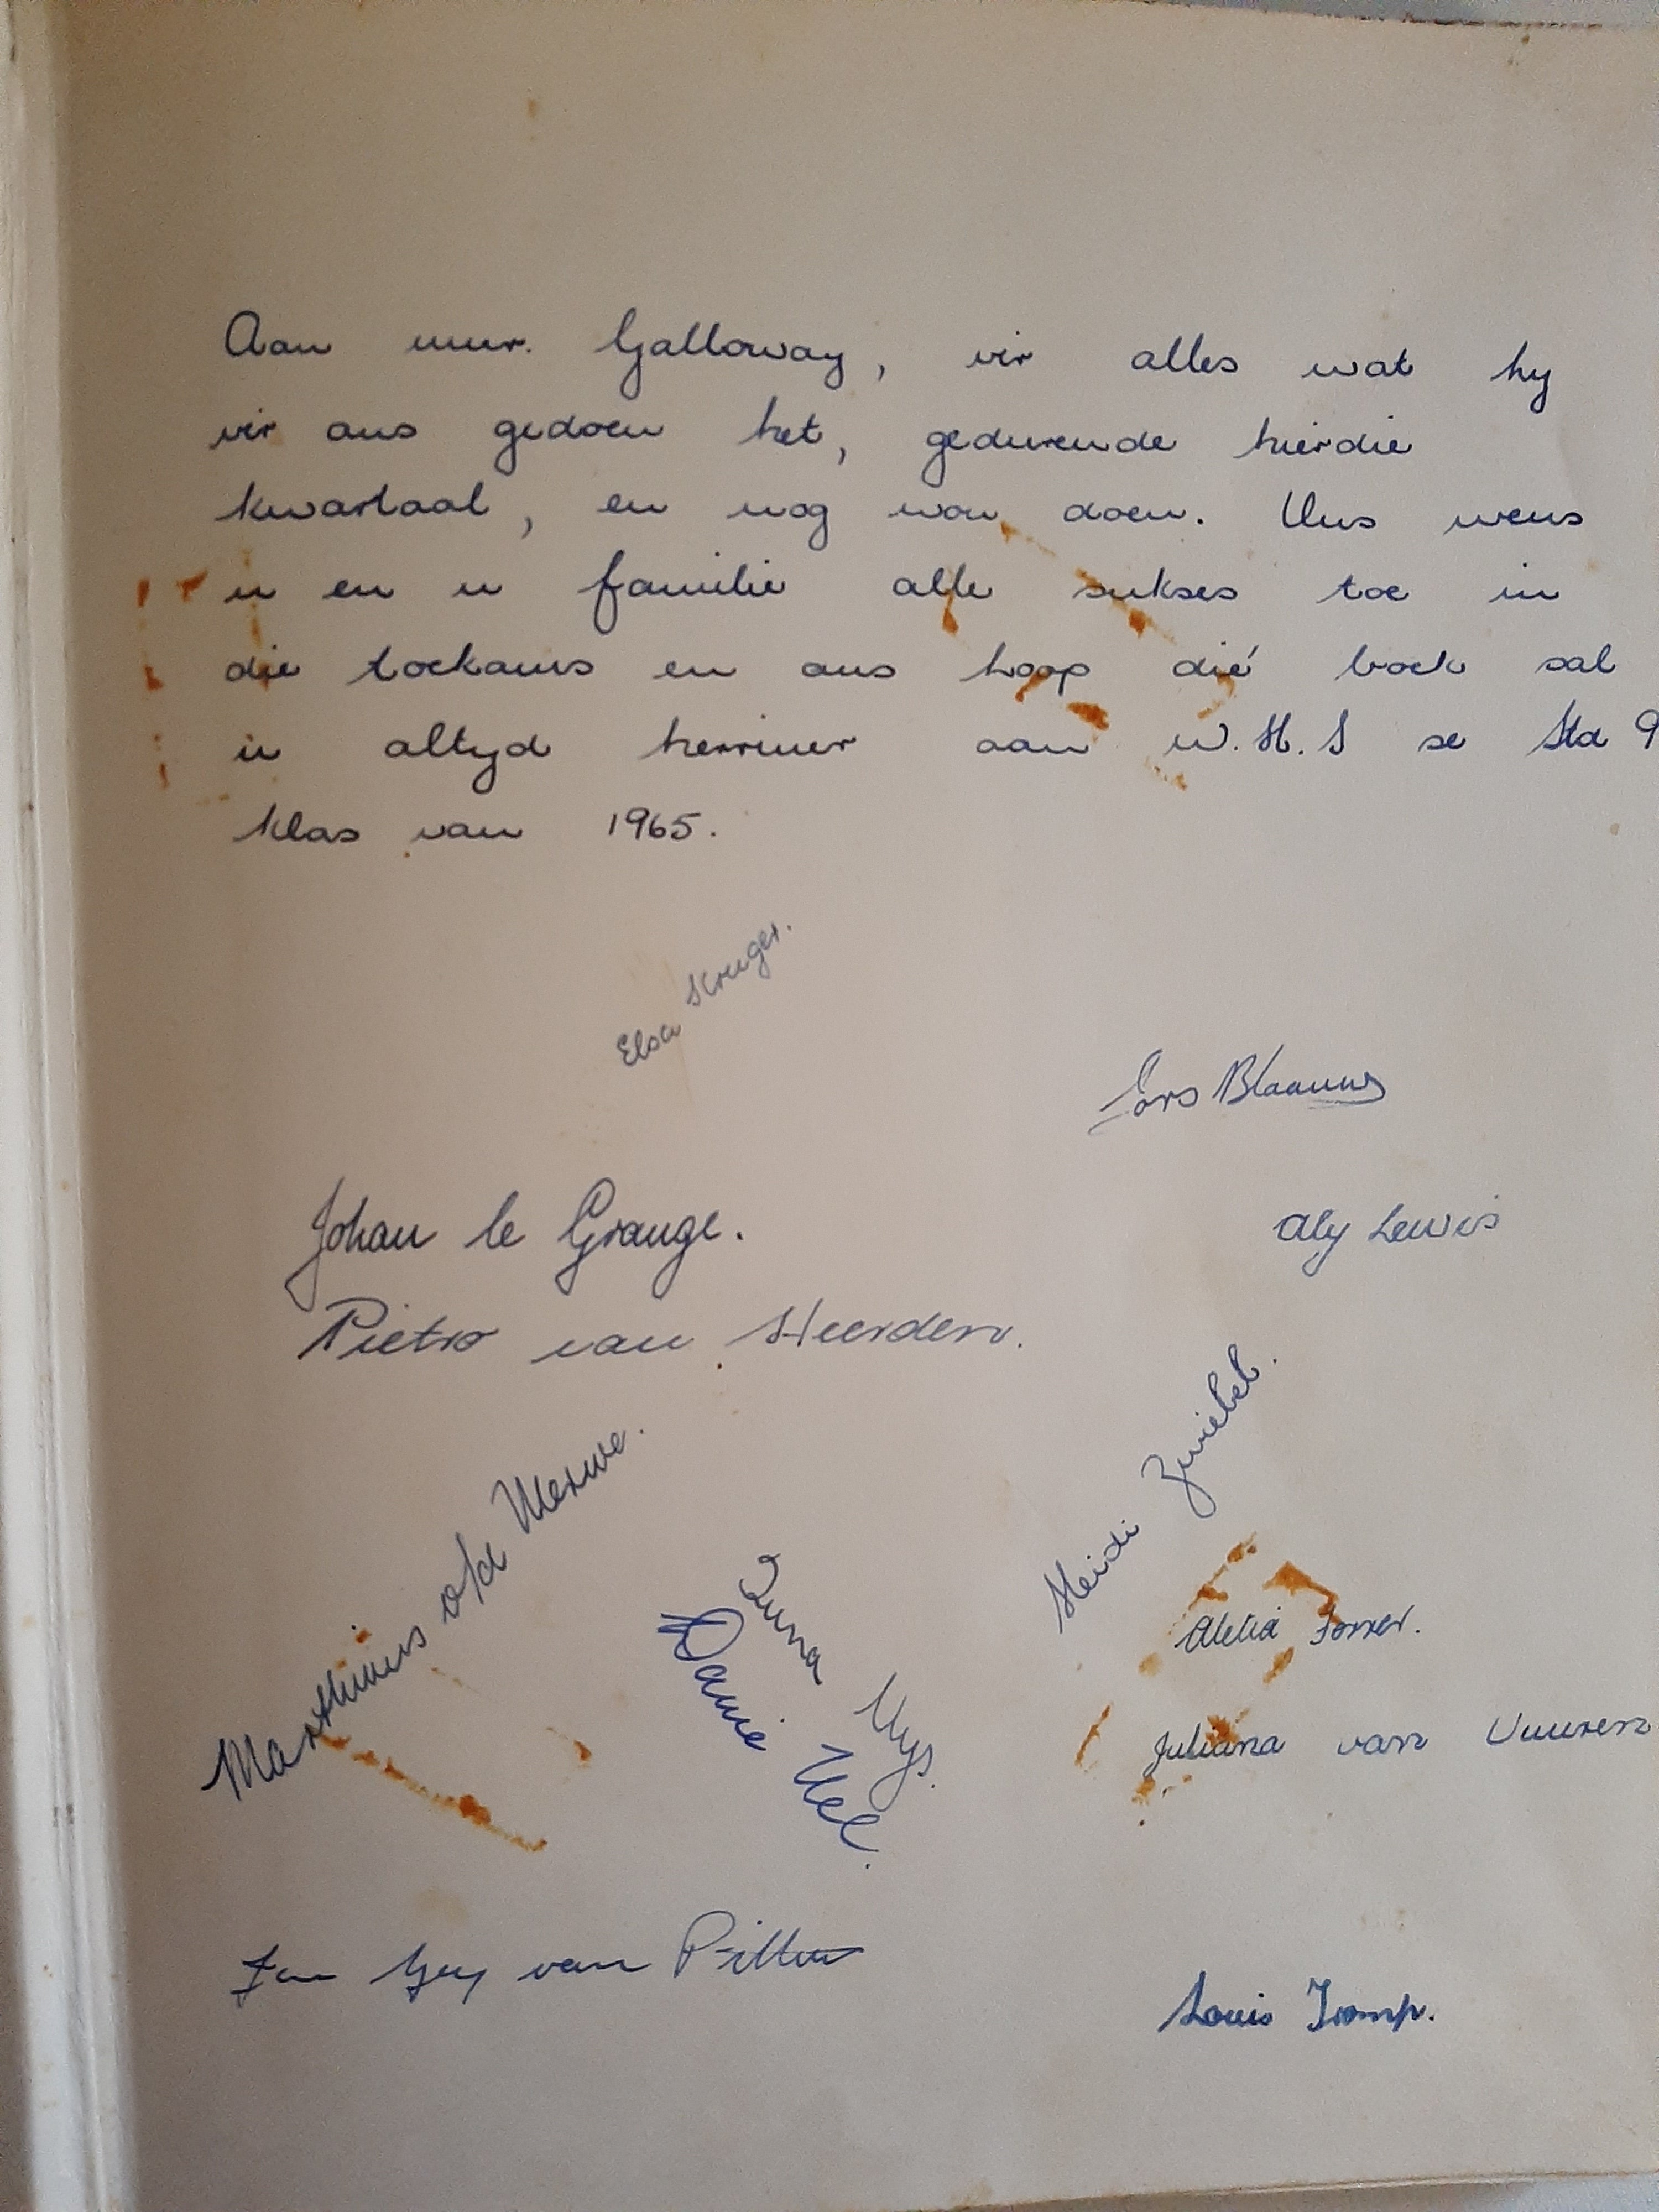 Aan mnr. Galloway, vir alles wat hy
vir ons gedoen het, gedurende hierdie
kwartaal, en nog wou doen. Ons wens
u en u familie alle sukses toe in
die toekoms en ons hoop dié boek sal
u altyd herriner aan W.H.S se Std 9
klas van 1965.
Elsa Kruger.
Blaauw
Johan le Grange.
Aly Lewis
Pietro van Heerden.
Heidi Zwiebel.
Marthinus v/d Merwe.
Nys.
Danie Nel.
Aletia Forrer.
Juliana van Vuuren
Jan Gey van Pittius
Louis Tromp.